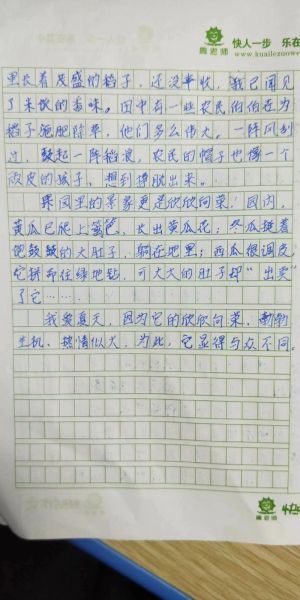 周老师
快人一步 乐在
www.kuailezuowe
里长着茂盛的稻子，还没丰收，我已闻见
了米饭的香味。田中有一些农民伯伯在为
稻子施肥除草，他们多么伟大。一阵风刮
过，鼓起一阵稻浪，农民的帽子也像一个
顽皮的孩子，想到挣脱出来。
果园里的景象更是欣欣向荣！园内，
黄瓜已爬上篱笆，长出黄瓜花；冬瓜挺着
饱鼓鼓的大肚子，躺在地里；西瓜很调皮，
它拼命往绿地钻，可大大的肚子却“出卖”
了它……
我爱夏天，因为它的欣欣向荣、勃勃
生机、热情似火，为此，它显得与众不同。
周老师